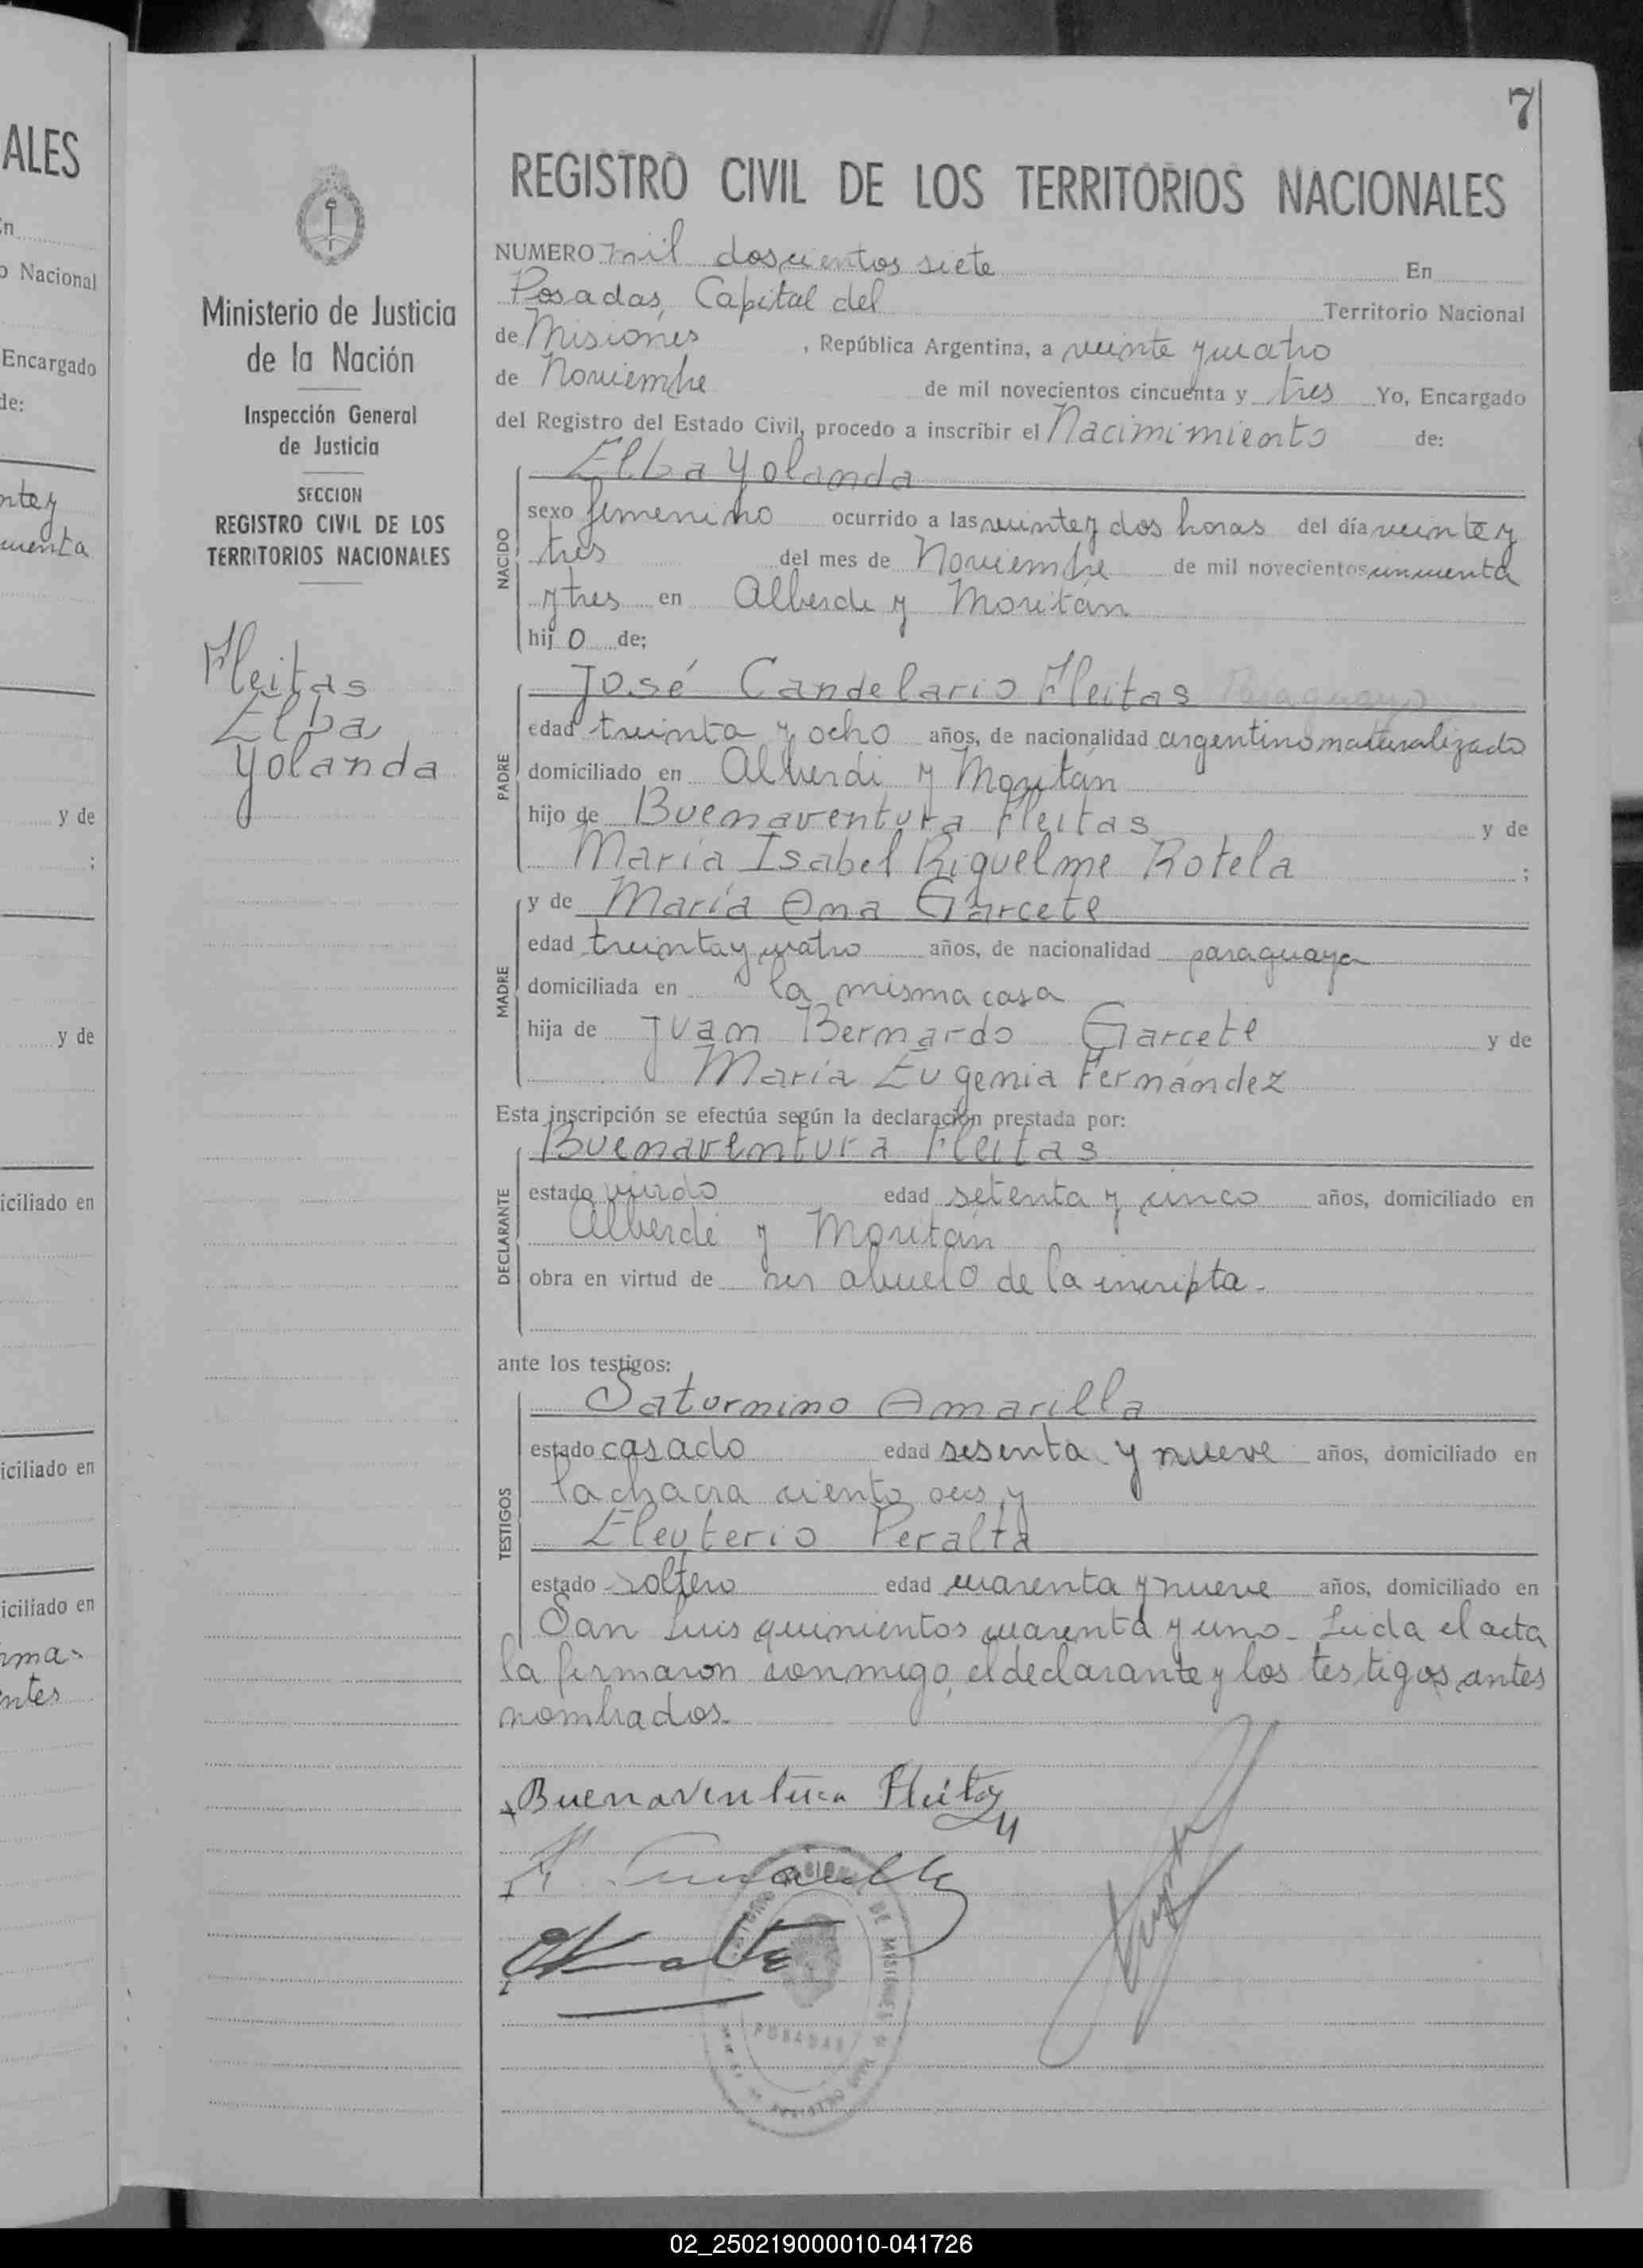 ALES
En
o Nacional
Encargado
de:
y de
;
y de
iciliado en
iciliado en
iciliado en
ntes
7
Ministerio de Justicia
de la Nación
Inspección General
de Justicia
SECCION
REGISTRO CIVIL DE LOS
TERRITORIOS NACIONALES
Fleitas
Elba
Yolanda
REGISTRO CIVIL DE LOS TERRITORIOS NACIONALES
NUMERO mil doscientos siete En
Posadas, Capital del Territorio Nacional
de Misiones, República Argentina, a veinte y cuatro
de Noviembre de mil novecientos cincuenta y tres Yo, Encargado
del Registro del Estado Civil, procedo a inscribir el Nacimimiento de:
NACIDO
Elba Yolanda
sexo femenino ocurrido a las veinte y dos horas del día veinte y
tres del mes de Noviembre de mil novecientos cincuenta
y tres en Alberdi y Moritán
hijo de;
PADRE
José Candelario Fleitas Paraguayo
edad treinta y ocho años, de nacionalidad argentino naturalizado
domiciliado en Alberdi y Moritán
hijo de Buenaventura Fleitas y de
María Isabel Riquelme Rotela ;
MADRE
y de María Ana Garcete
edad treinta y cuatro años, de nacionalidad paraguaya
domiciliada en la misma casa
hija de Juan Bernardo Garcete y de
María Eugenia Fernández
Esta inscripción se efectúa según la declaración prestada por:
DECLARANTE
Buenaventura Fleitas
estado viudo edad setenta y cinco años, domiciliado en
Alberdi y Moritán
obra en virtud de ser abuelo de la inscripta.
ante los testigos:
TESTIGOS
Saturnino Amarilla
estado casado edad sesenta y nueve años, domiciliado en
la chacra ciento seis y
Eleuterio Peralta
estado soltero edad cuarenta y nueve años, domiciliado en
San Luis quinientos cuarenta y uno. Leida el acta
la firmaron conmigo, el declarante y los testigos antes
nombrados.
Buenaventura Fleitas
POSADAS
02_250219000010-041726